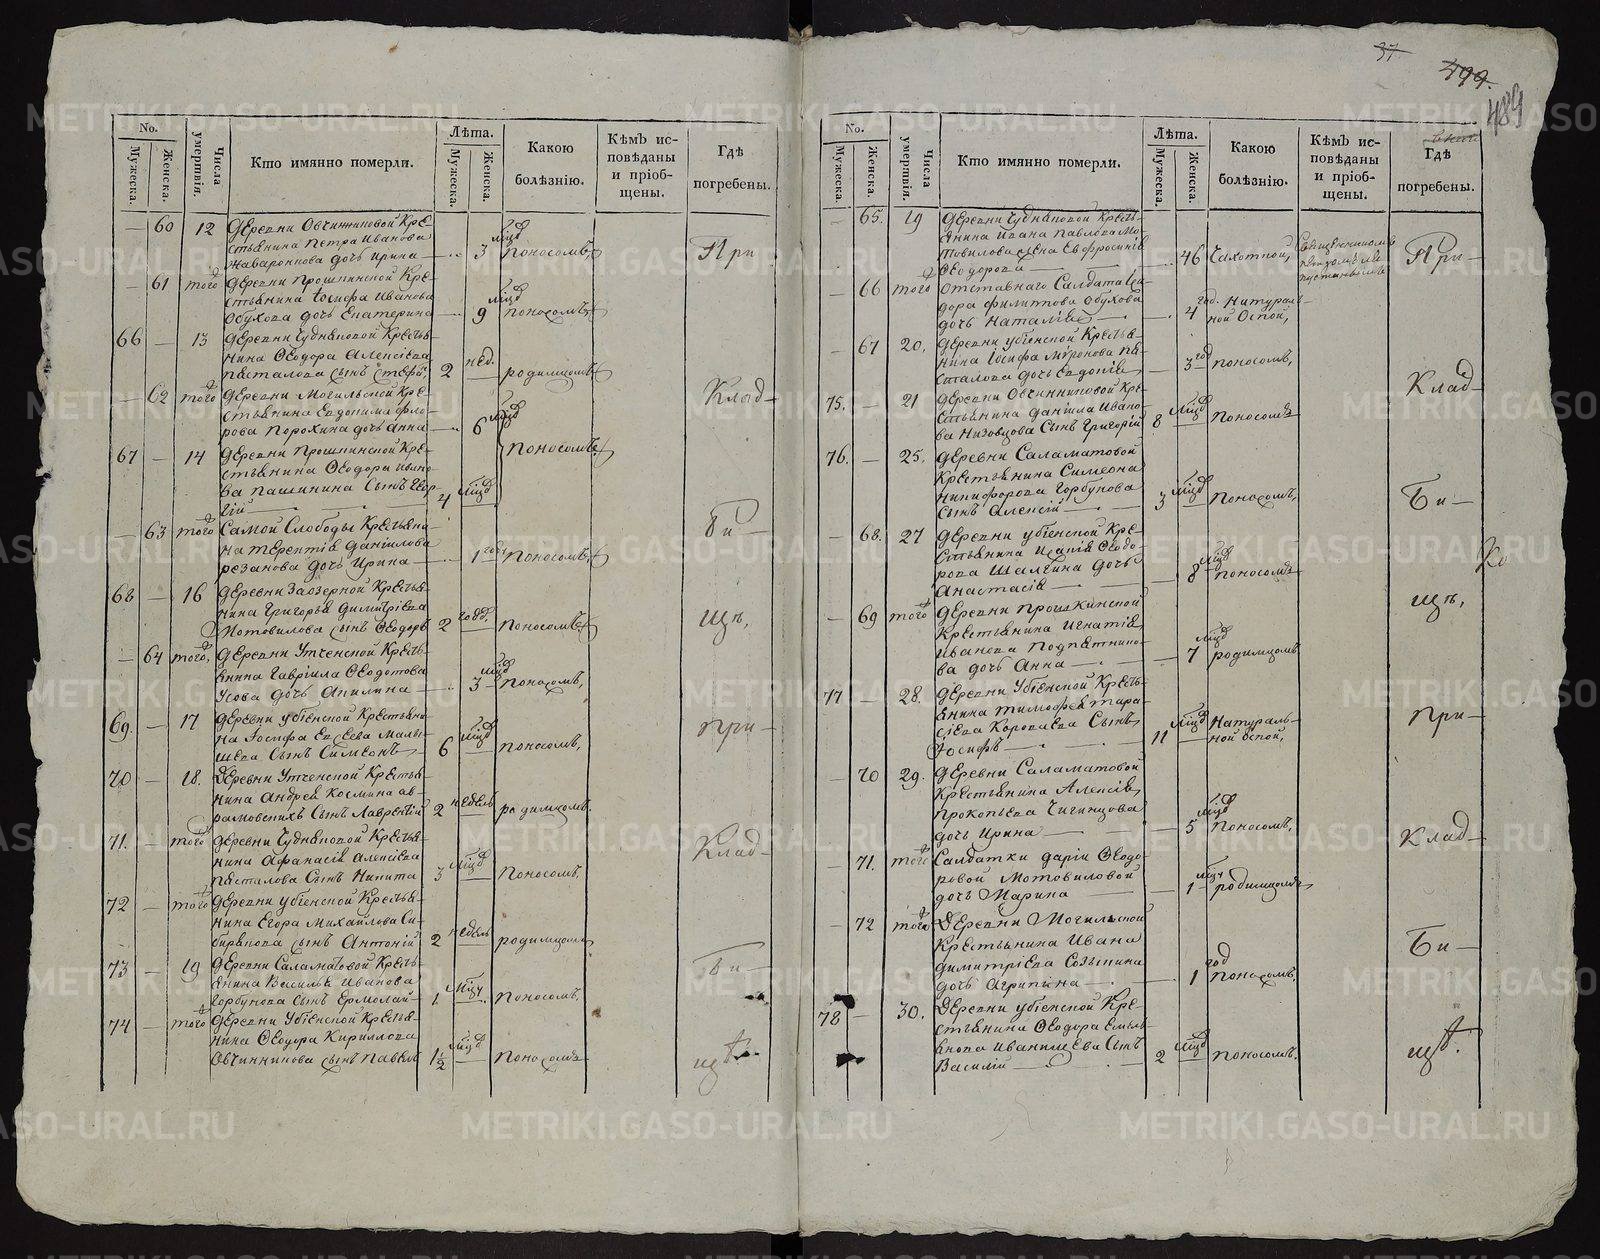 37
499.
489
No.
Мужеска.
Женска.
Числа умертвія.
Кто имянно померли.
Лѣта.
Мужеска.
Женска.
Какою болѣзнію.
Кѣмъ исповѣданы и пріобщены.
Гдѣ погребены.
— 60 12 деревни Овчинниковой Кре-
стьянина Петра Иванова
дочь Ирина — 3 мцд поносомъ,
— 61 того деревни Прошкинской Кре-
стьянина Іосифа Иванова
Обухова дочь Екатерина — 9 мцд поносомъ,
66 — 13 деревни Чудиновой Крестья-
нина Ѳеодора Алексіева
сынъ 2 нед. родимцомъ,
— 62 того деревни Могильской Кре-
стьянина Евдокима Фло-
рова Порохина дочь Анна — 6 мцд
67 — 14 деревни Прошкинской Кре-
стьянина Ѳеодора Ивано-
ва Пашинина Сынъ Геор-
гій — 4 мцд поносомъ,
— 63 того Самой Слободы Крестьяни-
на Терентія Даніилова
Резанова дочь Ирина — 1 годъ поносомъ,
68 — 16 деревни Заозерной Крестья-
нина Григорья Димитріева
Мотовилова сынъ Ѳеодоръ 2 годъ. поносомъ,
— 64 того, деревни Утченской Кресть-
янина Гавріила Ѳеодотова
Усова дочь Акилина — 3 мцд поносомъ,
69. — 17 деревни Убіенской Крестьяни-
на Іосифа Евсеева Малы-
шева Сынъ Симеонъ — 6 мцд поносомъ,
70 — 18. Деревни Утченской Крестья-
нина Андрея Космина Ав-
рамовскихъ Сынъ Лаврентій 2 недель родимцомъ.
71. — того деревни Чудиновой Крестья-
нина Афанасія Алексіева
Сынъ Никита 3 мцд Поносомъ,
72 — того деревни Убіенской Крестья-
нина Егора Михайлова Си-
бирякова сынъ Антоній 2 недель родимцомъ
73 — 19 деревни Саламатовой Кресть-
янина Василья Иванова
Горбунова Сынъ Ермолай — 1 мцъ. поносомъ,
74 — того деревни Убіенской Крестья-
нина Ѳеодора Кириллова
Овчинникова сынъ Павелъ 1½ мцд поносомъ
При-
Клад-
Би-
щѣ,
При-
Клад-
Би-
щѣ.
No.
Мужеска.
Женска.
Числа умертвія.
Кто имянно померли.
Лѣта.
Мужеска.
Женска.
Какою болѣзнію.
Кѣмъ исповѣданы и пріобщены.
Гдѣ погребены.
— 65. 19 деревни Чудиновой Кресть-
янина Ивана Павлова Мо-
товилова жена Евфросинія
Ѳеодорова — 46 Чахоткой, Священникомъ
— 66 того отставнаго Салдата
дора Филиппова Обухова
дочь Наталія — 4 год. Натураль-
ной Оспой,
— 67 20. деревни Убіенской Крестья-
нина Іосифа Миронова
дочь Евдокія — 3 год поносомъ,
75. — 21 деревни Овчинниковой Кре-
стьянина Даніила Ивано-
ва Низовцова Сынъ Григорій 8 мцд Поносомъ
76. — 25. деревни Саламатовой
Крестьянина Симеона
Никифорова Горбунова
Сынъ Алексій — 3 мцд Поносомъ,
— 68. 27 деревни Убіенской Кре-
стьянина Исакія Ѳеодо-
рова Шалгина дочь
Анастасія — 8 мцд поносомъ
— 69 того деревни Прошкинской
Крестьянина Игнатія
Иванова Подпятнико-
ва дочь Анна — 7 мцд родимцомъ
77 — 28. деревни Убіенской Кресть-
янина Тимофея Тара-
сіева Коропаева Сынъ
Іосифъ — 11 мцд Натураль-
ной Оспой,
— 70 29. деревни Саламатовой
Крестьянина Алексія
Прокопьева Чигинцова
дочь Ирина — 5 мцд Поносомъ,
— 71. того Салдатки Даріи Ѳеодо-
ровой Мотовиловой
дочь Марина — 1 мцъ родимцомъ
— 72 того Деревни Могильской
Крестьянина Ивана
Димитріева Созыкина
дочь Агрипина — 1 год поносомъ.
78 — 30. Деревни Убіенской Кре-
стьянина Ѳеодора Емель-
янова Иванищева Сынъ
Василій — 2 мцд поносомъ.
При-
Клад-
Би-
щѣ,
При-
Клад-
Би-
щѣ.
Ко
METRIKI.GASO-URAL.RU